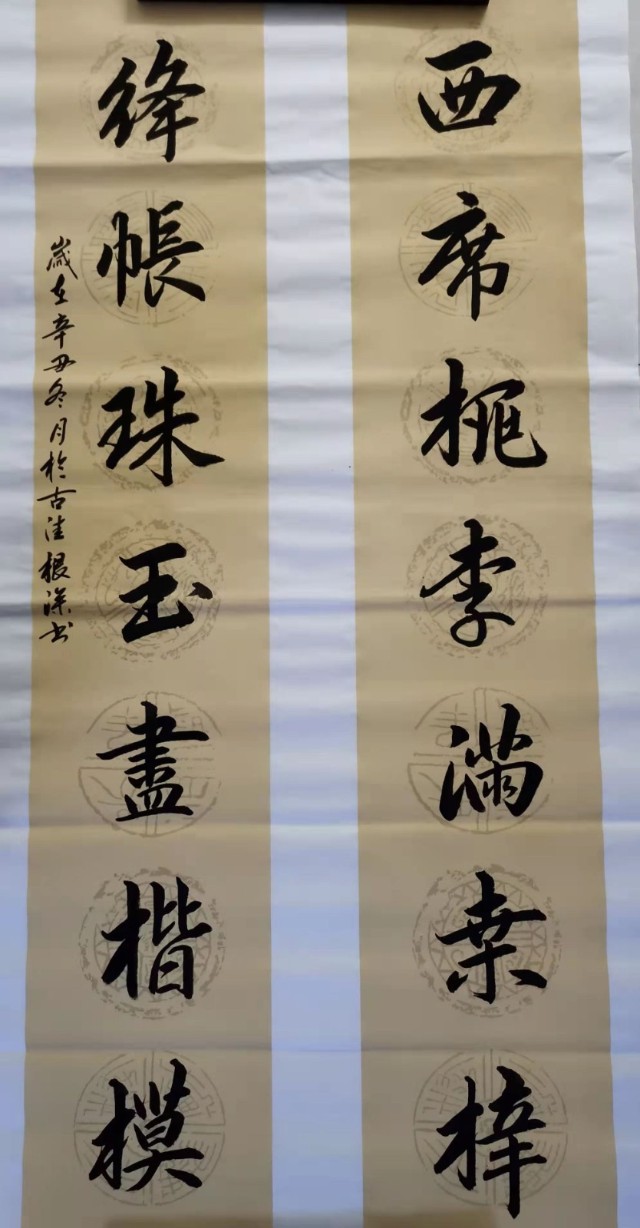 西席桃李滿桑梓
絳帳珠玉盡楷模
歲在辛丑冬月於古洼根深书